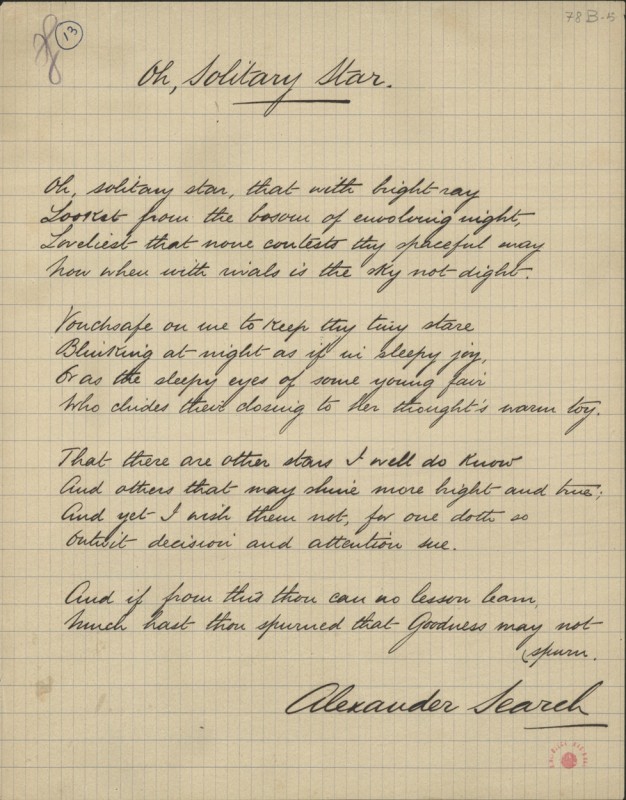 13
78B-5
Oh, Solitary Star.
Oh, solitary star, that with bright ray
Lookest from the bosom of envolving night,
Loveliest that none contests thy spaceful way
Now when with rivals is the sky not dight.
Vouchsafe on me to keep thy tiny stare
Blinking at night as if in sleepy joy,
Or as the sleepy eyes of some young fair
Who chides their closing to her thought's warm toy.
That there are other stars I well do know
And others that may shine more bright and true;
And yet I wish them not, for one doth so
Outwit decision and attention sue.
And if from this thou can no lesson learn,
Much hast thou spurned that Goodness may not
spurn.
Alexander Search